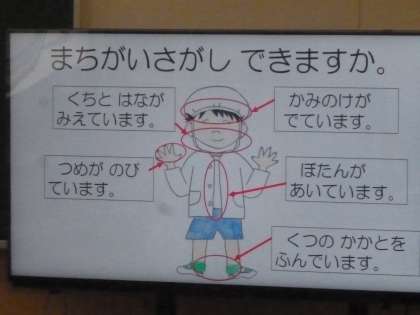 まちがいさがし できますか。
くちと はなが
みえています。
かみのけが
でています。
つめが のび
ています。
ぼたんが
あいています。
くつの かかとを
ふんでいます。